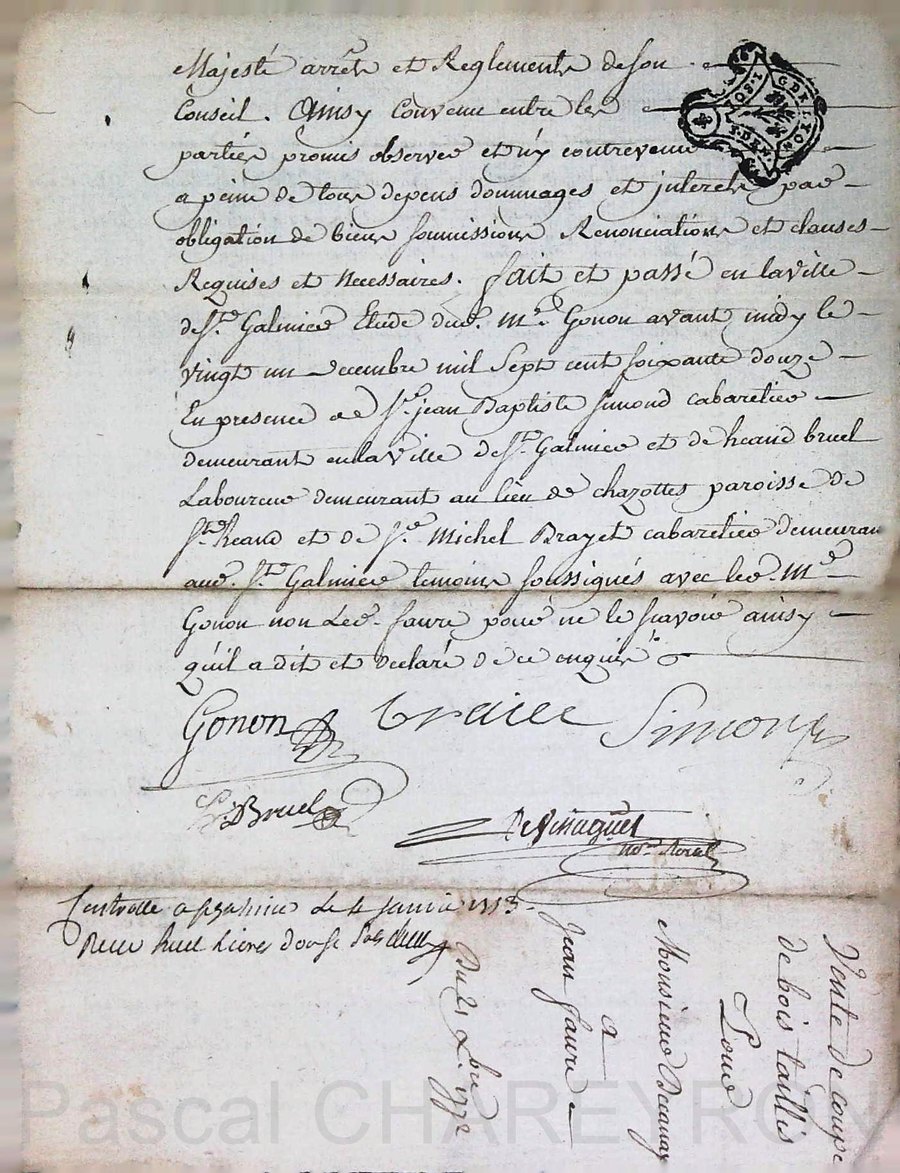 Majesté arrêts et Reglements de son
Conseil. Ainsy Convenu entre les
parties promis observer et n'y contrevenir
a peine de tous depens dommages et interets par
obligation de biens soumissions Renonciations et clauses
Requises et necessaires. fait et passé en la ville
de St. Galmier Etude dud. Me. Gonon avant midy le
vingt un decembre mil sept cent soixante douze
En presence de Sr. jean Baptiste Simond cabaretier
demeurant en la ville de St. Galmier et de heand bruel
Laboureur demeurant au lieu de chazottes paroisse de
St. heand et de Sr. Michel Brayet cabaretier demeuran
aud. St. Galmier temoins soussignés avec led. Me.
Gonon non Led. faure pour ne le scavoir ainsy
qu'il a dit et declaré de ce enquis
Gonon Simon
Bruel
Devinaguet
no.re Royal
Controllé a le 4 janvier 1773
Recu huit Livres douse sols
Vente de coupe
de bois taillis
Pour
Monsieur
a
Jean faure
Du 21 Xbre 1772
GDE LYON
Pascal CHAREYRON